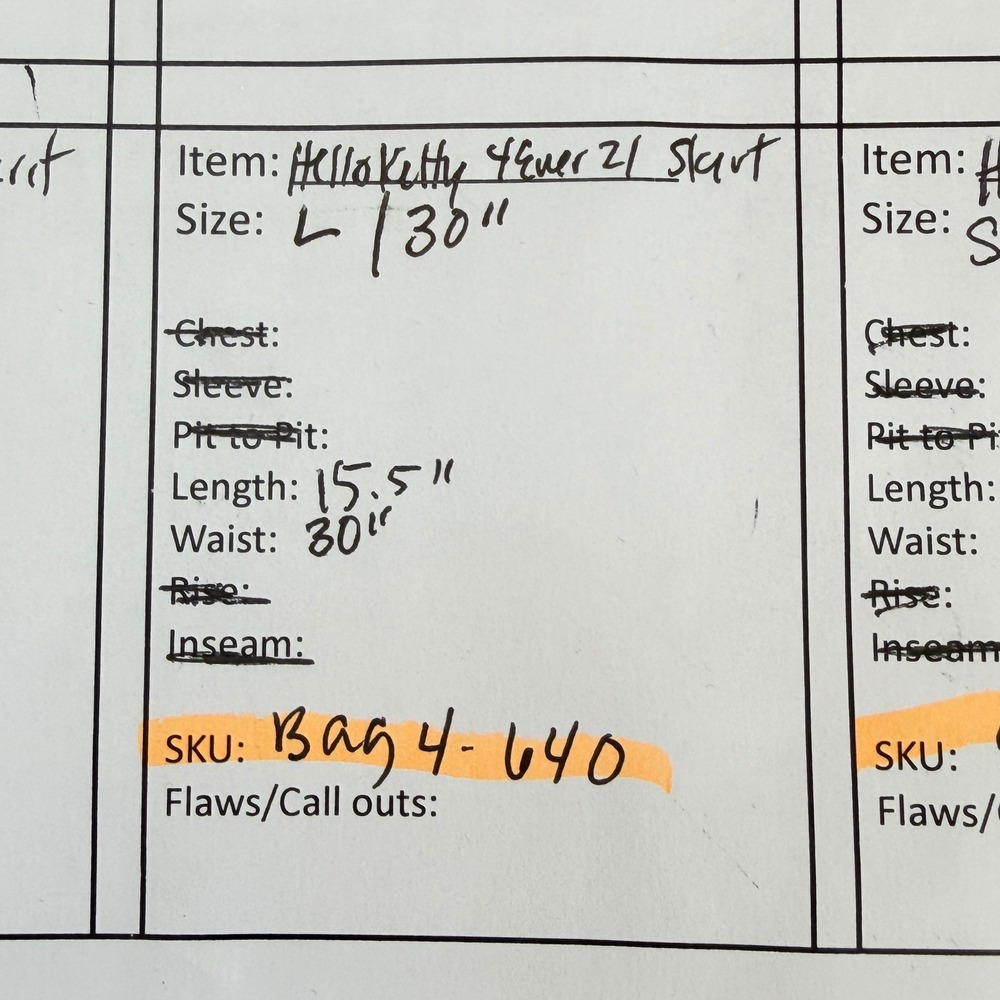 Item: Hello Kitty 4Ever 21 Skirt
Size: L / 30"
Chest:
Sleeve:
Pit to Pit:
Length: 15.5"
Waist: 30"
Rise:
Inseam:
SKU: Bag 4-640
Flaws/Call outs:
Item:
Size: S
Chest:
Sleeve:
Pit to Pi
Length:
Waist:
Rise:
Inseam
SKU:
Flaws/